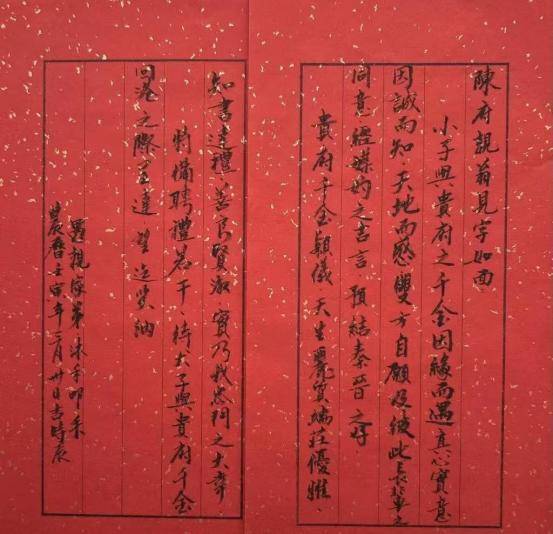 陳府親翁見字如面
小子與貴府之千金因緣而遇真心實意
因誠而知天地而感雙方自願及彼此長輩之
同意經媒妁之吉言預結秦晉之好
貴府千金穎儀天生麗質端莊優雅
知書達禮善良賢淑實乃我忝門之大幸
特備聘禮若干待犬子與貴府千金
回港之際送達望迄笑納
愚親家弟
農曆壬寅年二月卅日吉時辰